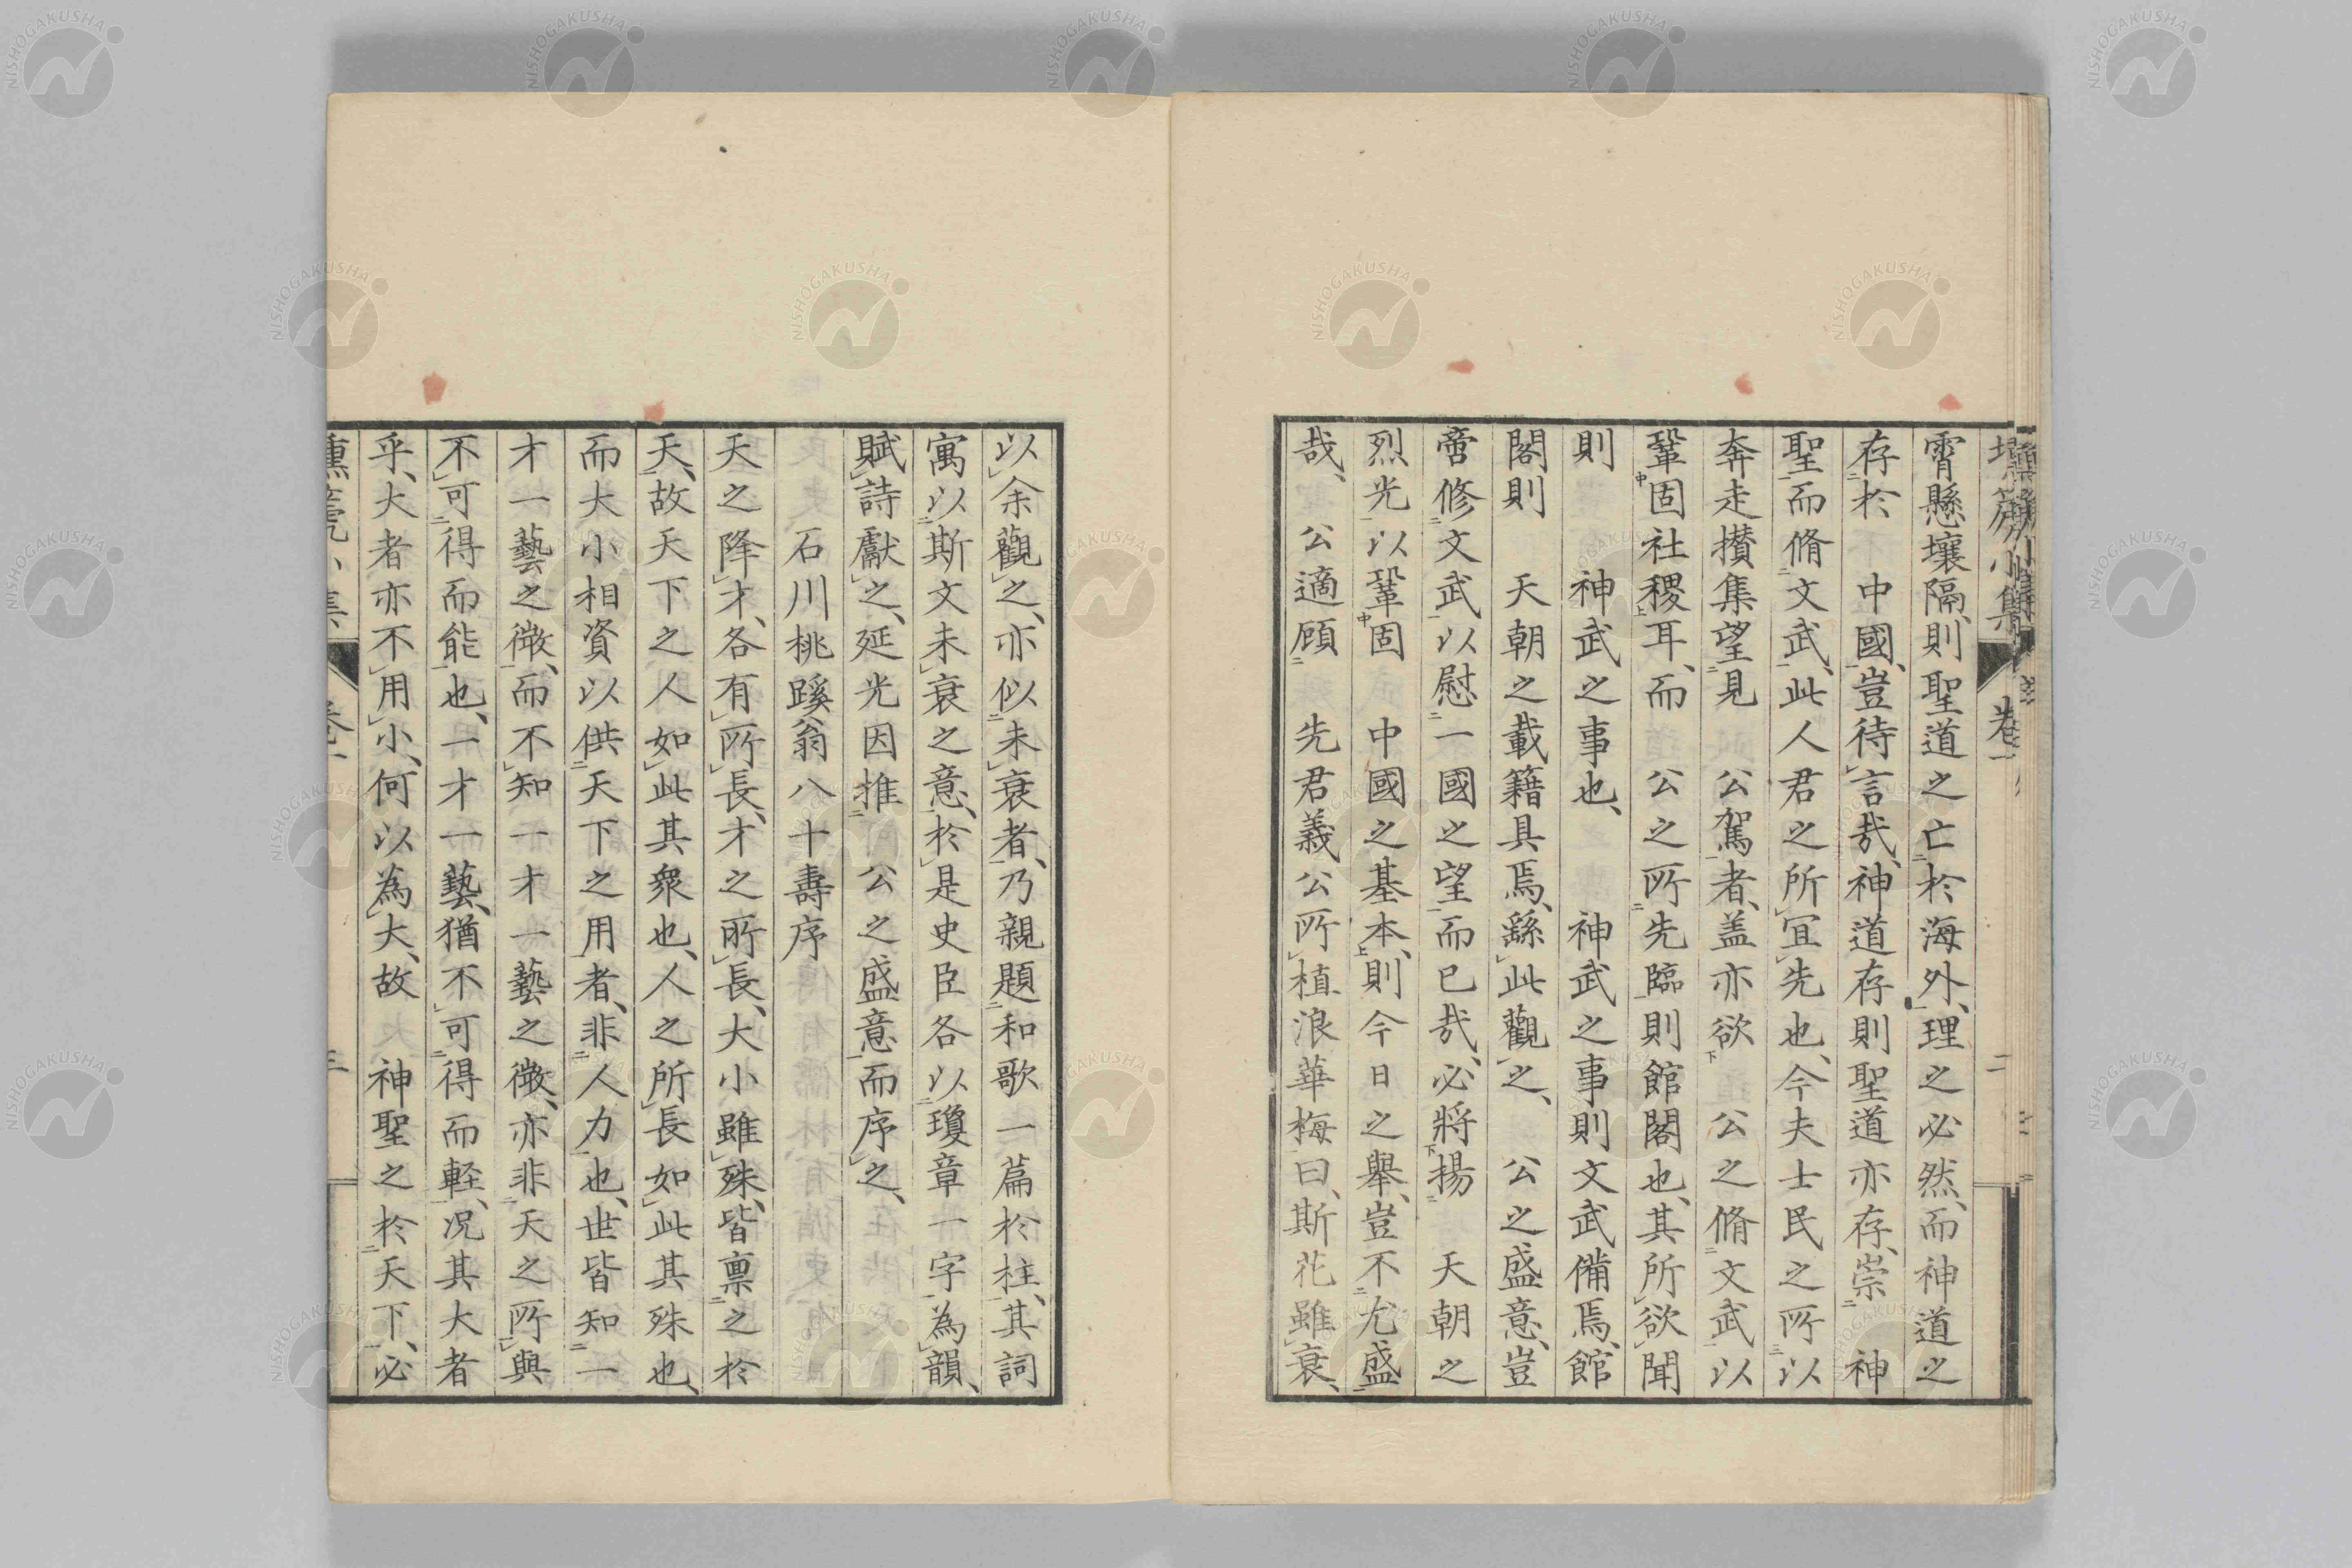 霄懸壤隔、則聖道之亡於海外、理之必然、而神道之
存於　中國、豈待言哉、神道存則聖道亦存、崇　神
聖而脩文武、此人君之所宜先也、今夫士民之所以
奔走攅集望見　公駕者、盖亦欲　公之脩文武以
鞏固社稷耳、而　公之所先臨則館閣也、其所欲聞
則　神武之事也、　神武之事則文武備焉、館
閣則　天朝之載籍具焉、繇此觀之、　公之盛意、豈
啻修文武以慰一國之望而已哉、必將揚　天朝之
烈光以鞏固　中國之基本、則今日之舉、豈不尤盛
哉、　公適顧　先君義公所植浪華梅曰、斯花雖衰、
以余觀之、亦似未衰者、乃親題和歌一篇於柱、其詞
寓以斯文未衰之意、於是史臣各以瓊章一字為韻、
賦詩獻之、延光因推　公之盛意而序之、
石川桃蹊翁八十壽序
天之降才、各有所長、才之所長、大小雖殊、皆稟之於
天、故天下之人如此其衆也、人之所長如此其殊也、
而大小相資以供天下之用者、非人力也、世皆知一
才一藝之微、而不知一才一藝之微、亦非天之所與
不可得而能也、一才一藝、猶不可得而軽、况其大者
乎、大者亦不用小、何以為大、故　神聖之於天下、必